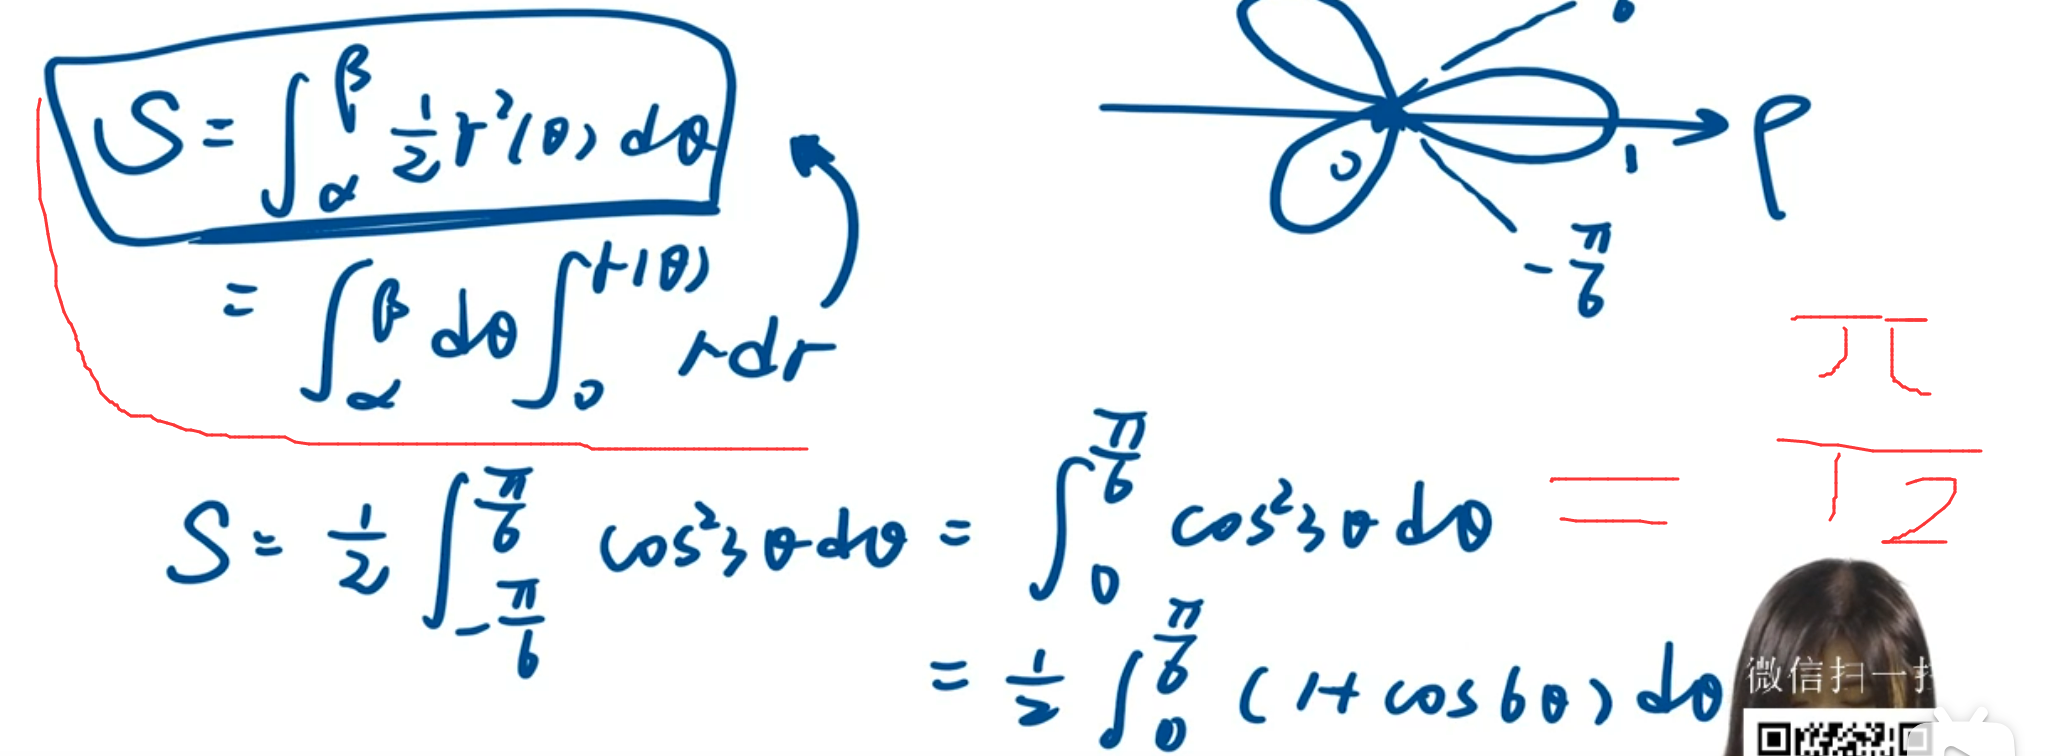 S = ∫_α^β 1/2 r²(θ) dθ
= ∫_α^β dθ ∫_0^{r(θ)} r dr
0 1 ρ
-π/6
S = 1/2 ∫_{-π/6}^{π/6} cos²3θ dθ = ∫_0^{π/6} cos²3θ dθ = π/12
= 1/2 ∫_0^{π/6} (1 + cos6θ) dθ
微信扫一扫